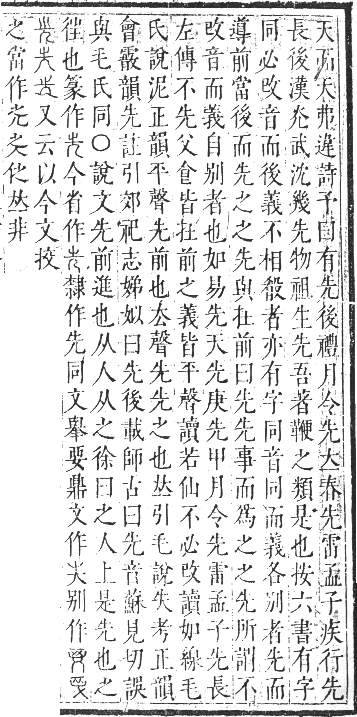 天而天弗違詩予曰有先後禮月令先立春先雷孟子疾行先
長後漢光武沈幾先物祖生先吾著鞭之類是也按六書有字
同必改音而後義不相殽者亦有字同音同而義各別者先而
導前當後而先之之先與在前曰先先事而爲之之先所謂不
改音而義自別者也如易先天先庚先甲月令先雷孟子先長
左傳不先父食皆在前之義皆平聲讀若仙不必改讀如線毛
氏說泥正韻平聲先前也去聲先先之也𠀤引毛說失考正韻
會霰韻先註引郊祀志娣姒曰先後載師古曰先音蘇見切誤
與毛氏同〇說文先前進也从人从之徐曰之人上是先也之
往也篆作今省作隸作先同文舉要鼎文作別作
又云以今文按
之當作𠀤非